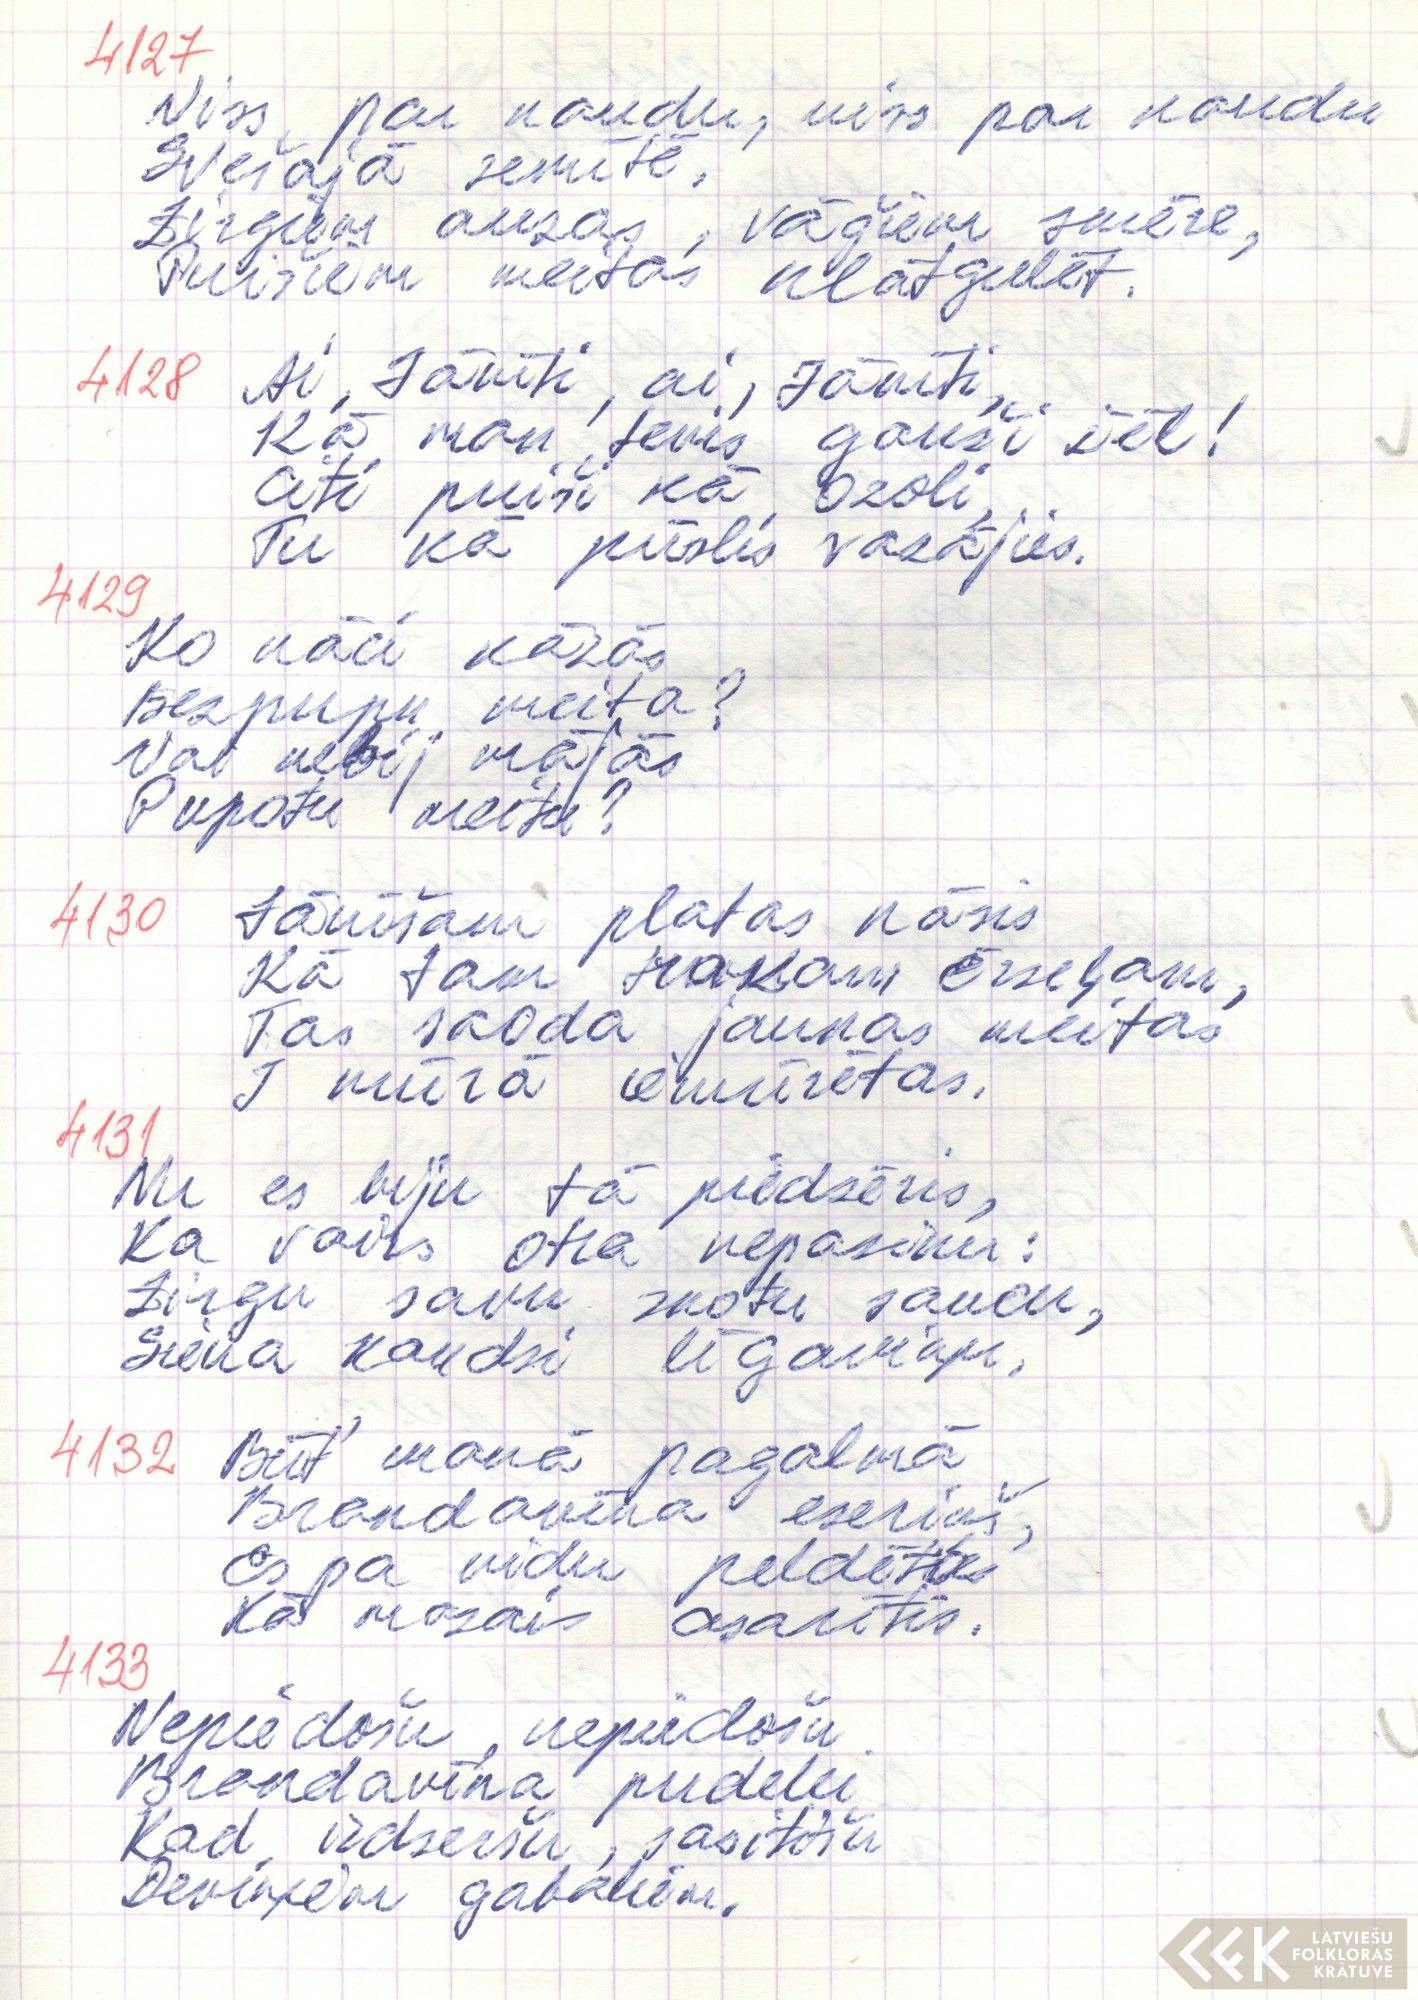 4127
Viss par naudu, viss par naudu
Svešajā zemītē,
Zirgiem auzas, vāģiem smēre,
Puišiem meitas klātgulēt.
4128
Ai, Jānīti, ai, Jānīti,
Kā man tevis gauži žēl!
Citi puiši kā ozoli,
Tu kā pūslis vazājies.
4129
Ko nāci kāzās
Bezpupu meita?
Vai nebij mājās
Pupotu meitu?
4130
Jānīšam platas nāsis
Kā tam trakam ērzeļam,
Tas saoda jaunas meitas
I mūrā iemūrētas.
4131
Nu es biju tā piedzēris,
Ka vairs otra nepazinu:
Zirgu savu znotu saucu,
Siena kaudzi līgaviņu.
4132
Būt' manā pagalmā
Brandavīna ezeriņš,
Es pa vidu peldētos
Kā mazais asarītis.
4133
Nepiedošu, nepiedošu
Brandavīna pudelei
Kad izdzeršu, sasitīšu
Deviņiem gabaliem.
LATVIEŠU
FOLKLORAS
KRĀTUVE